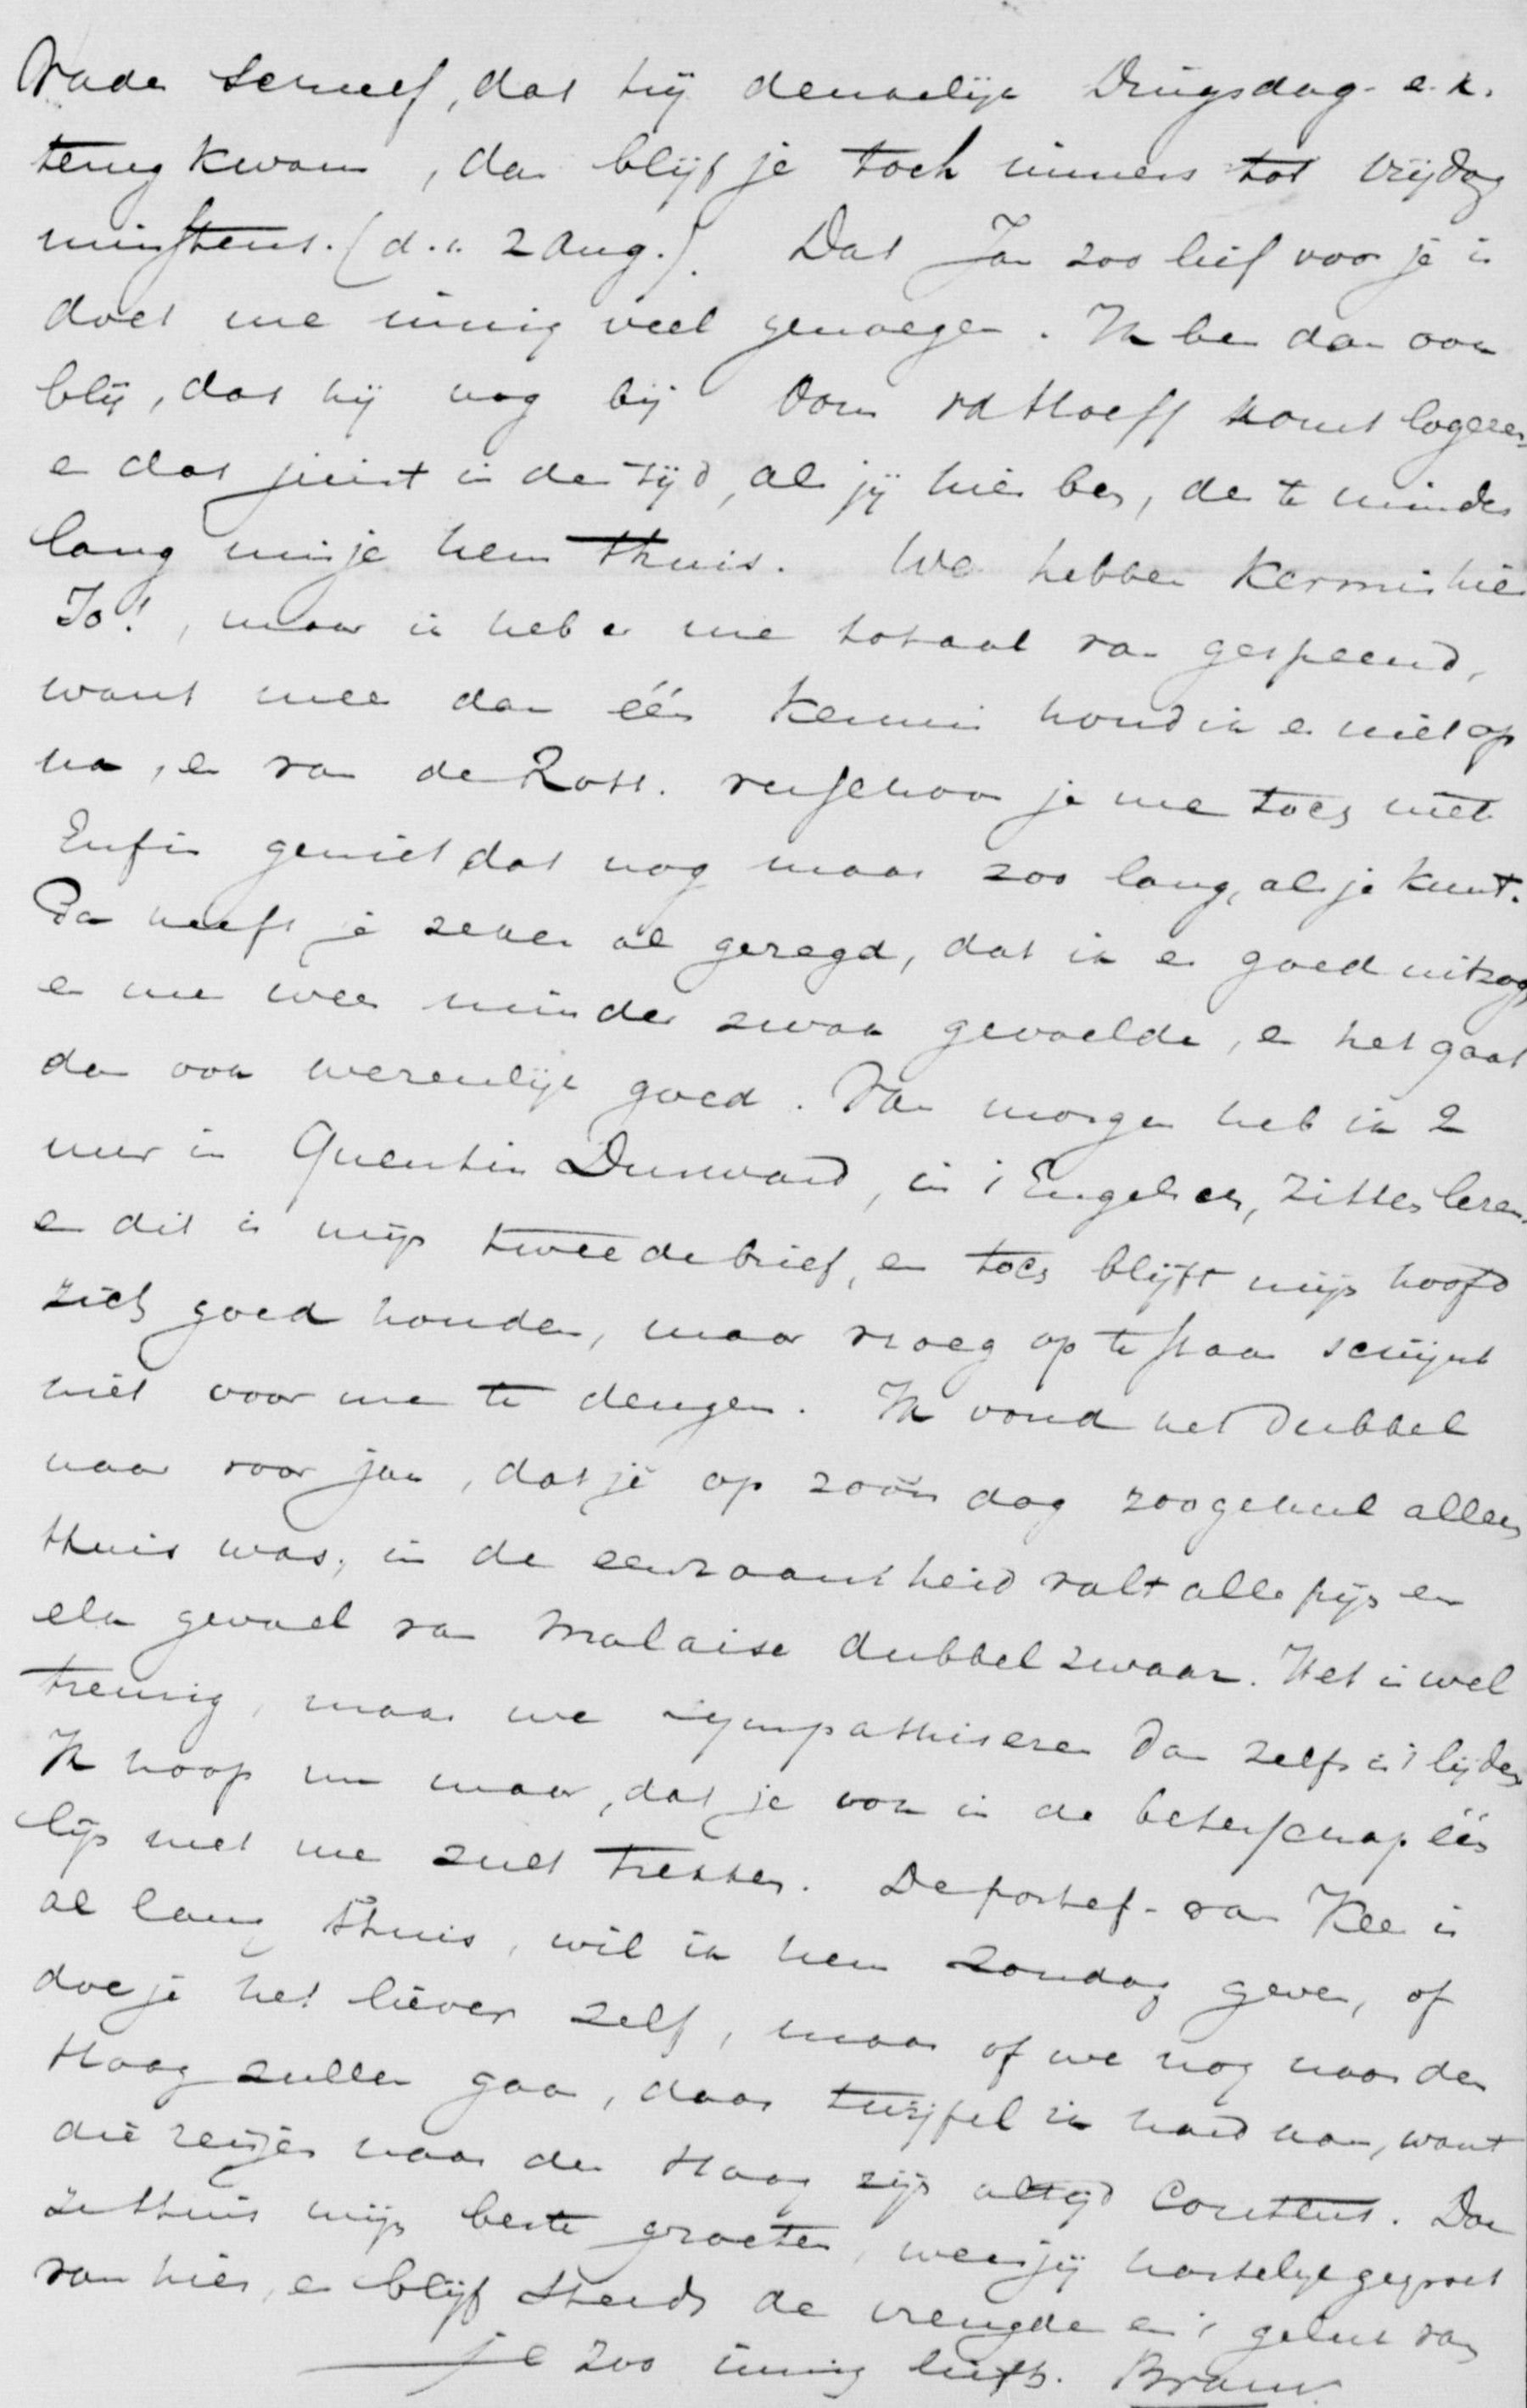 Vader schreef, dat hij denkelijk Dingsdag e.k.
terug kwam, dan blijf je toch immers tot Vrijdag
minstens. (d.i. 2 Aug.). Dat Jan zoo lief voor je is
doet me innig veel genoegen. Ik ben dan ook
blij, dat hij nog bij Oom vd Hoeff komt logeren
en dat juist in den tijd, als jij hier ben, des te minder
lang mis je hem thuis. We hebben Kermis hier
Jo!, maar ik heb er me totaal van gespeend,
want meer dan één Kermis houd ik er niet op
na, en van de Rott. verschoon je me toch niet
Enfin geniet dat nog maar zoo lang, als je kunt.
Pa heeft je zeker al gezegd, dat ik er goed uitzag
en me weer minder zwak gevoelde, en het gaat
dan ook werkelijk goed. Van morgen heb ik 2
uur in Quentin Durward, in 't Engelsch, zitten lezen
en dit is mijn tweede brief, en toch blijft mijn hoofd
zich goed houden, maar vroeg op te staan schijnt
niet voor me te deugen. Ik vond het dubbel
naar voor jou, dat je op zoo'n dag zoo geheel alleen
thuis was, in de eenzaamheid valt alle pijn en
elk gevoel van Malaise dubbel zwaar. Het is wel
treurig, maar we sympathiseren dan zelfs in 't lijden
Ik hoop nu maar, dat je ook in de beterschap één
lijn met me zult trekken. De portef. van Kee is
al lang thuis, wil ik hem Zondag geven, of
doe je het liever zelf, maar of we nog naar den
Haag zullen gaan, daar twijfel ik hard aan, want
die reisjes naar den Haag zijn altijd Costeus. Doe
ze thuis mijn beste groeten, wees jij hartelijk gegroet
van hier, en blijf steeds de vreugde en 't geluk van
je zoo innig liefh. Bram